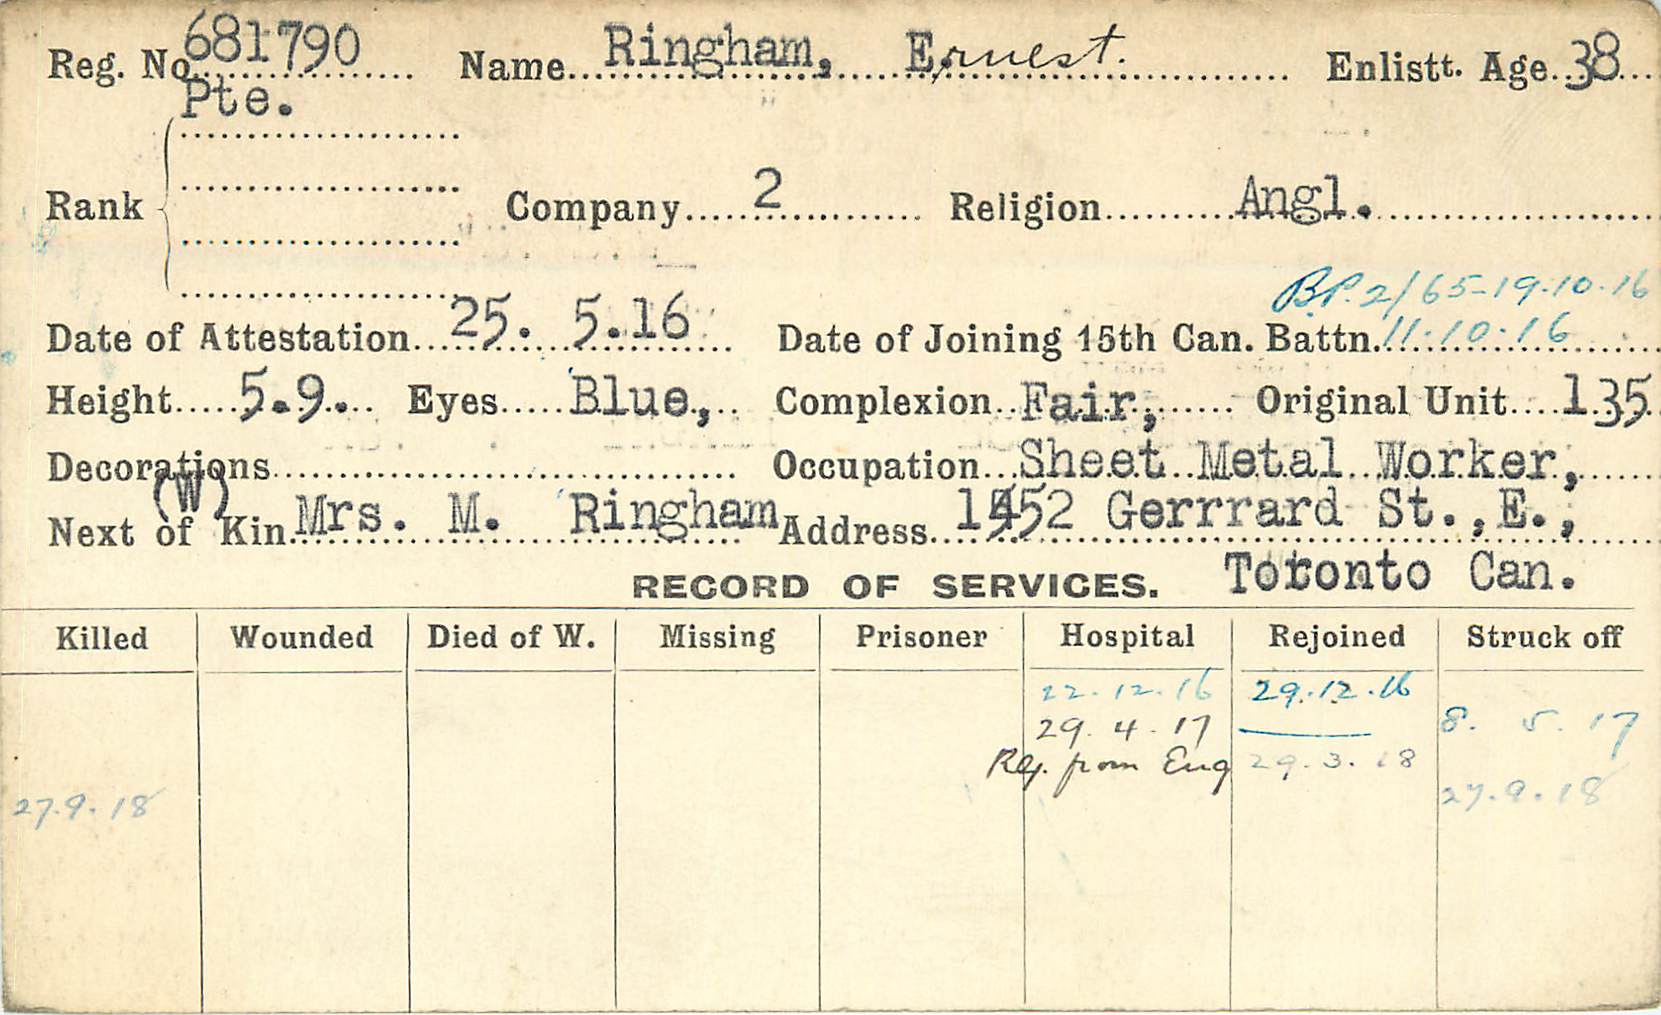 Reg. No. 681790 Name Ringham, Ernest. Enlistt. Age 38
Pte.
Rank Company 2 Religion Angl.
B.P. 2/65-19.10.16
Date of Attestation 25. 5.16 Date of Joining 15th Can. Battn. 11.10.16
Height 5.9. Eyes Blue, Complexion Fair, Original Unit 135
Decorations Occupation Sheet Metal Worker,
(W)
Next of Kin Mrs. M. Ringham Address 1452 Gerrrard St.,E.,
Toronto Can.
RECORD OF SERVICES.
Killed Wounded Died of W. Missing Prisoner Hospital Rejoined Struck off
22.12.16 29.12.16
29.4.17 8. 5. 17
Rej. from Eng 29.3.18
27.9.18 27.9.18